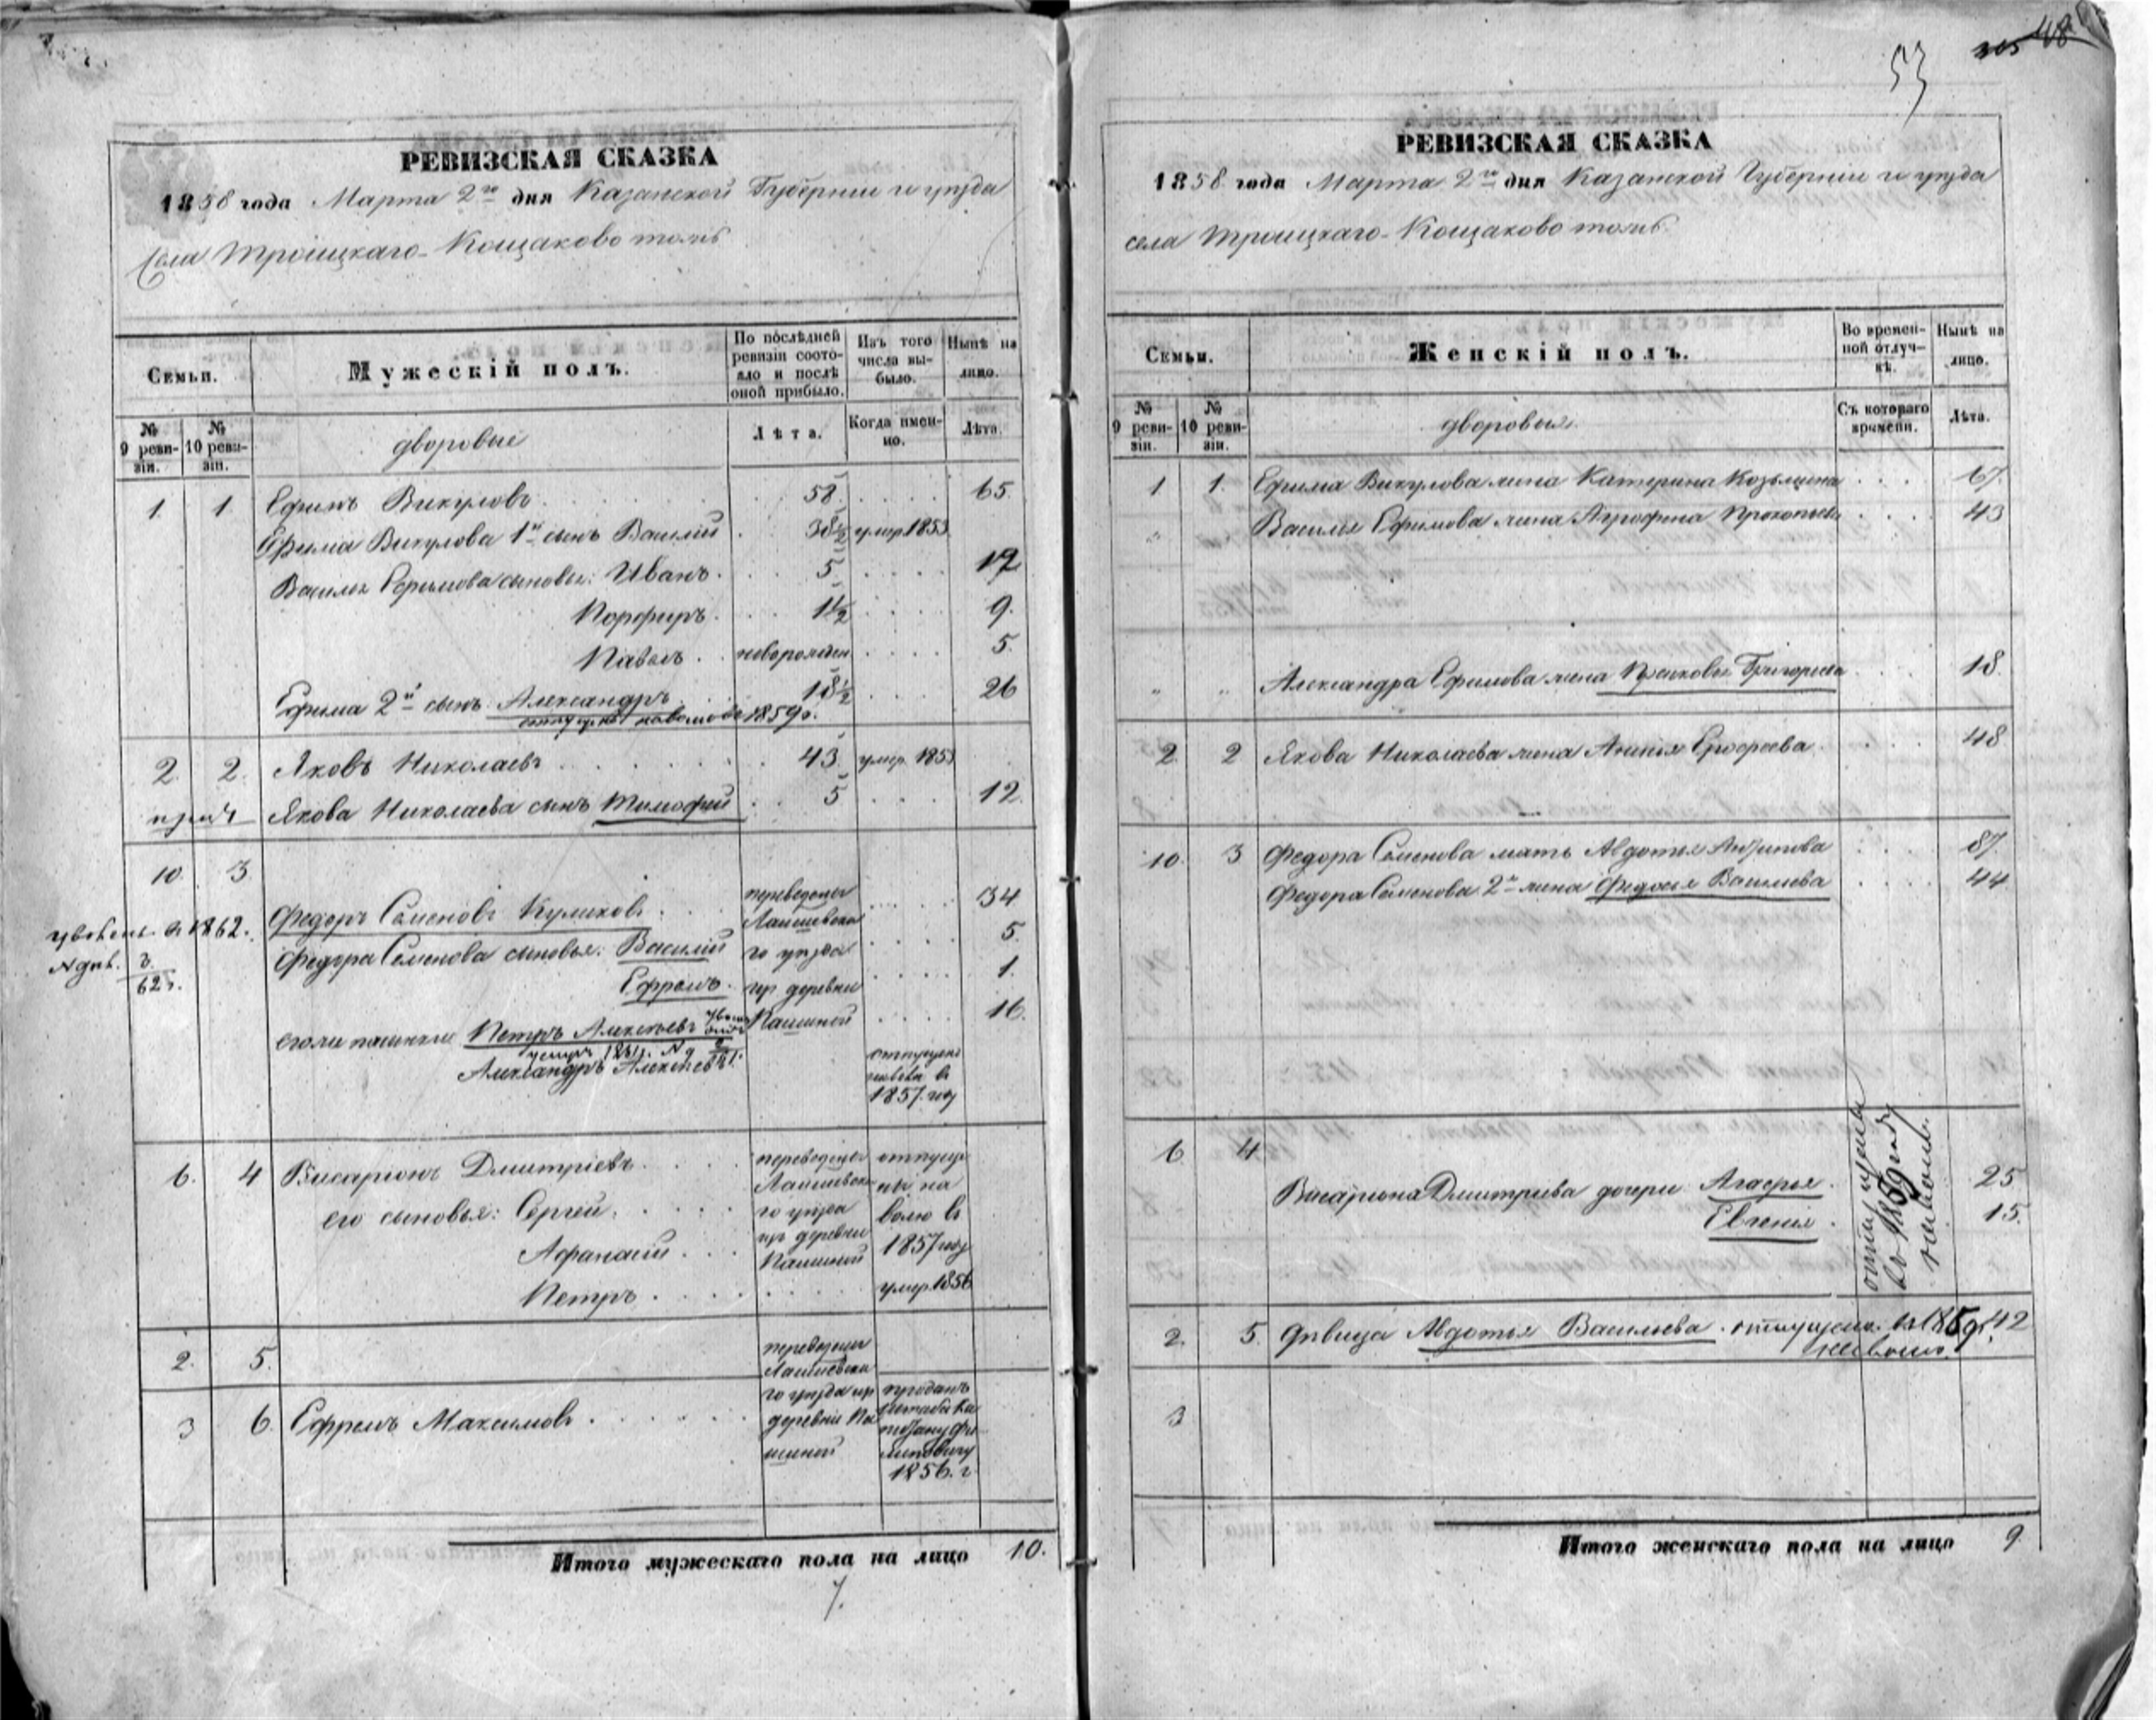 РЕВИЗСКАЯ СКАЗКА
1858 года Марта 2го дня Казанской Губернии и уезда
села Троицкаго-Кощаково тожъ
Семьи.
Мужескій полъ.
По послѣдней ревизіи состояло и послѣ оной прибыло.
Изъ того числа выбыло.
Нынѣ на лицо.
№ 9 ревизіи.
№ 10 ревизіи.
дворовые
Лѣта.
Когда именно.
Лѣта.
1. 1 Ефимъ Викуловъ 58 65
Ефима Викулова 1й сынъ Василий 38½ умер 1853
Василья Ефимова сыновья: Иванъ 5 12
Порфиръ 1½ 9.
Павелъ новорожден 5.
Ефима 2й сынъ Александръ 18½ 26
отпущенъ на волю в 1859 г.
2. 2. Яковъ Николаевъ 43 умер. 1853
Якова Николаева сынъ Тимофей 5 12
10. 3. Федоръ Семеновъ Куликовъ 34
переведены Лаишевскаго уезда из деревни Пашиной
1862.
Федора Семенова сыновья: Василий 5.
Ефремъ 1.
Петръ Алексеевъ 16.
Александръ Алексеевъ
отпущенъ на волю в 1857 году
6. 4 Висарионъ Дмитріевъ
его сыновья: Сергей
Афанасий
переведены Лаишевскаго уезда из деревни Пашиной
отпущены на волю в 1857 году
Петръ умер 1856
2. 5.
3 6. Ефремъ Максимовъ
переведены Лаишевскаго уезда из деревни Пашиной
проданъ
1856. г
Итого мужескаго пола на лицо 10.
7.
53
РЕВИЗСКАЯ СКАЗКА
1858 года Марта 2го дня Казанской Губерніи и уезда
села Троицкаго-Кощаково тожъ
Семьи.
Женскій полъ.
Во временной отлучкѣ.
Нынѣ на лицо.
№ 9 ревизіи.
№ 10 ревизіи.
дворовыя
Съ котораго времени.
Лѣта.
1 1. Ефима Викулова жена Катерина Козьмина 67.
Василья Ефимова жена Агрофена Прокопьева 43
" " Александра Ефимова жена Прасковья Григорьева 18.
2. 2 Якова Николаева жена Анисья Ерофеева 48
10. 3 Федора Семенова мать Авдотья Антипова 87
Федора Семенова 2я жена Федосья Васильева 44
6 4 Висариона Дмитриева дочери Агафья 25
Евгения 15.
отпущены в 1859 году на волю.
2. 5. Девица Авдотья Васильева отпущена в 1859 г. на волю. 42
3
Итого женскаго пола на лицо 9.